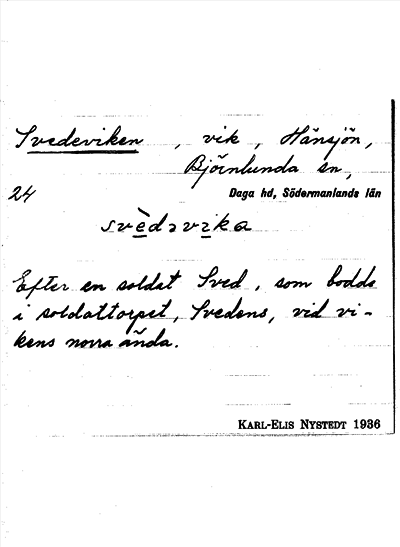 Svedeviken, vik, Hånsjön,
Björnlunda sn,
24 Daga hd, Södermanlands län
svèdəvika
Efter en soldat Sved, som bodde
i soldattorpet, Svedens, vid vi-
kens norra ända.
KARL-ELIS NYSTEDT 1936